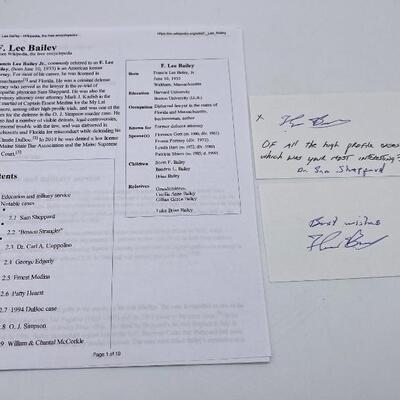 F. Lee Bailey - Wikipedia, the free encyclopedia
F. Lee Bailey
From Wikipedia, the free encyclopedia
Francis Lee Bailey Jr., commonly referred to as F. Lee
Bailey, (born June 10, 1933) is an American former
attorney. For most of his career, he was licensed in
Massachusetts and Florida. He was a criminal defense
attorney who served as the lawyer in the re-trial of
physician Sam Sheppard. He was also the
supervisory attorney over attorney Mark J. Kadish in the
court martial of Captain Ernest Medina for the My Lai
Massacre, among other high-profile trials, and was one of the
lawyers for the defense in the O. J. Simpson murder case. He
had a number of visible defeats, legal controversies,
personal trouble with the law, and was disbarred in
Massachusetts and Florida for misconduct while defending his
client Claude DuBoc. In 2014 he was denied a law license
Maine State Bar Association and the Maine Supreme
Court.
F. Lee Bailey
Born Francis Lee Bailey, Jr.
June 10, 1933
Waltham, Massachusetts
Education Harvard University
Boston University (LL.B.)
Occupation Disbarred lawyer in the states of
Florida and Massachusetts,
businessman, author
Known for Former defense attorney
Spouse(s) Florence Gott (m. 1960, div. 1961)
Froma Portney (div. 1972)
Lynda Hart (m. 1972; div. 1980)
Patricia Shiers (m. 1985, d. 1999)
Children Scott F. Bailey
Bendrix L. Bailey
Brian Bailey
Relatives Grandchildren
Caelin Anne Bailey
Luke Brian Bailey
Contents
Education and military service
Notable cases
2.1 Sam Sheppard
2.2 "Boston Strangler"
2.3 Dr. Carl A. Coppolino
2.4 George Edgerly
2.5 Ernest Medina
2.6 Patty Hearst
2.7 1994 DuBoc case
2.8 O. J. Simpson
2.9 William & Chantal McCorkle
Page 1 of 10
X
Of all the high profile cases
which was your most interesting?
Dr. Sam Sheppard
Best wishes